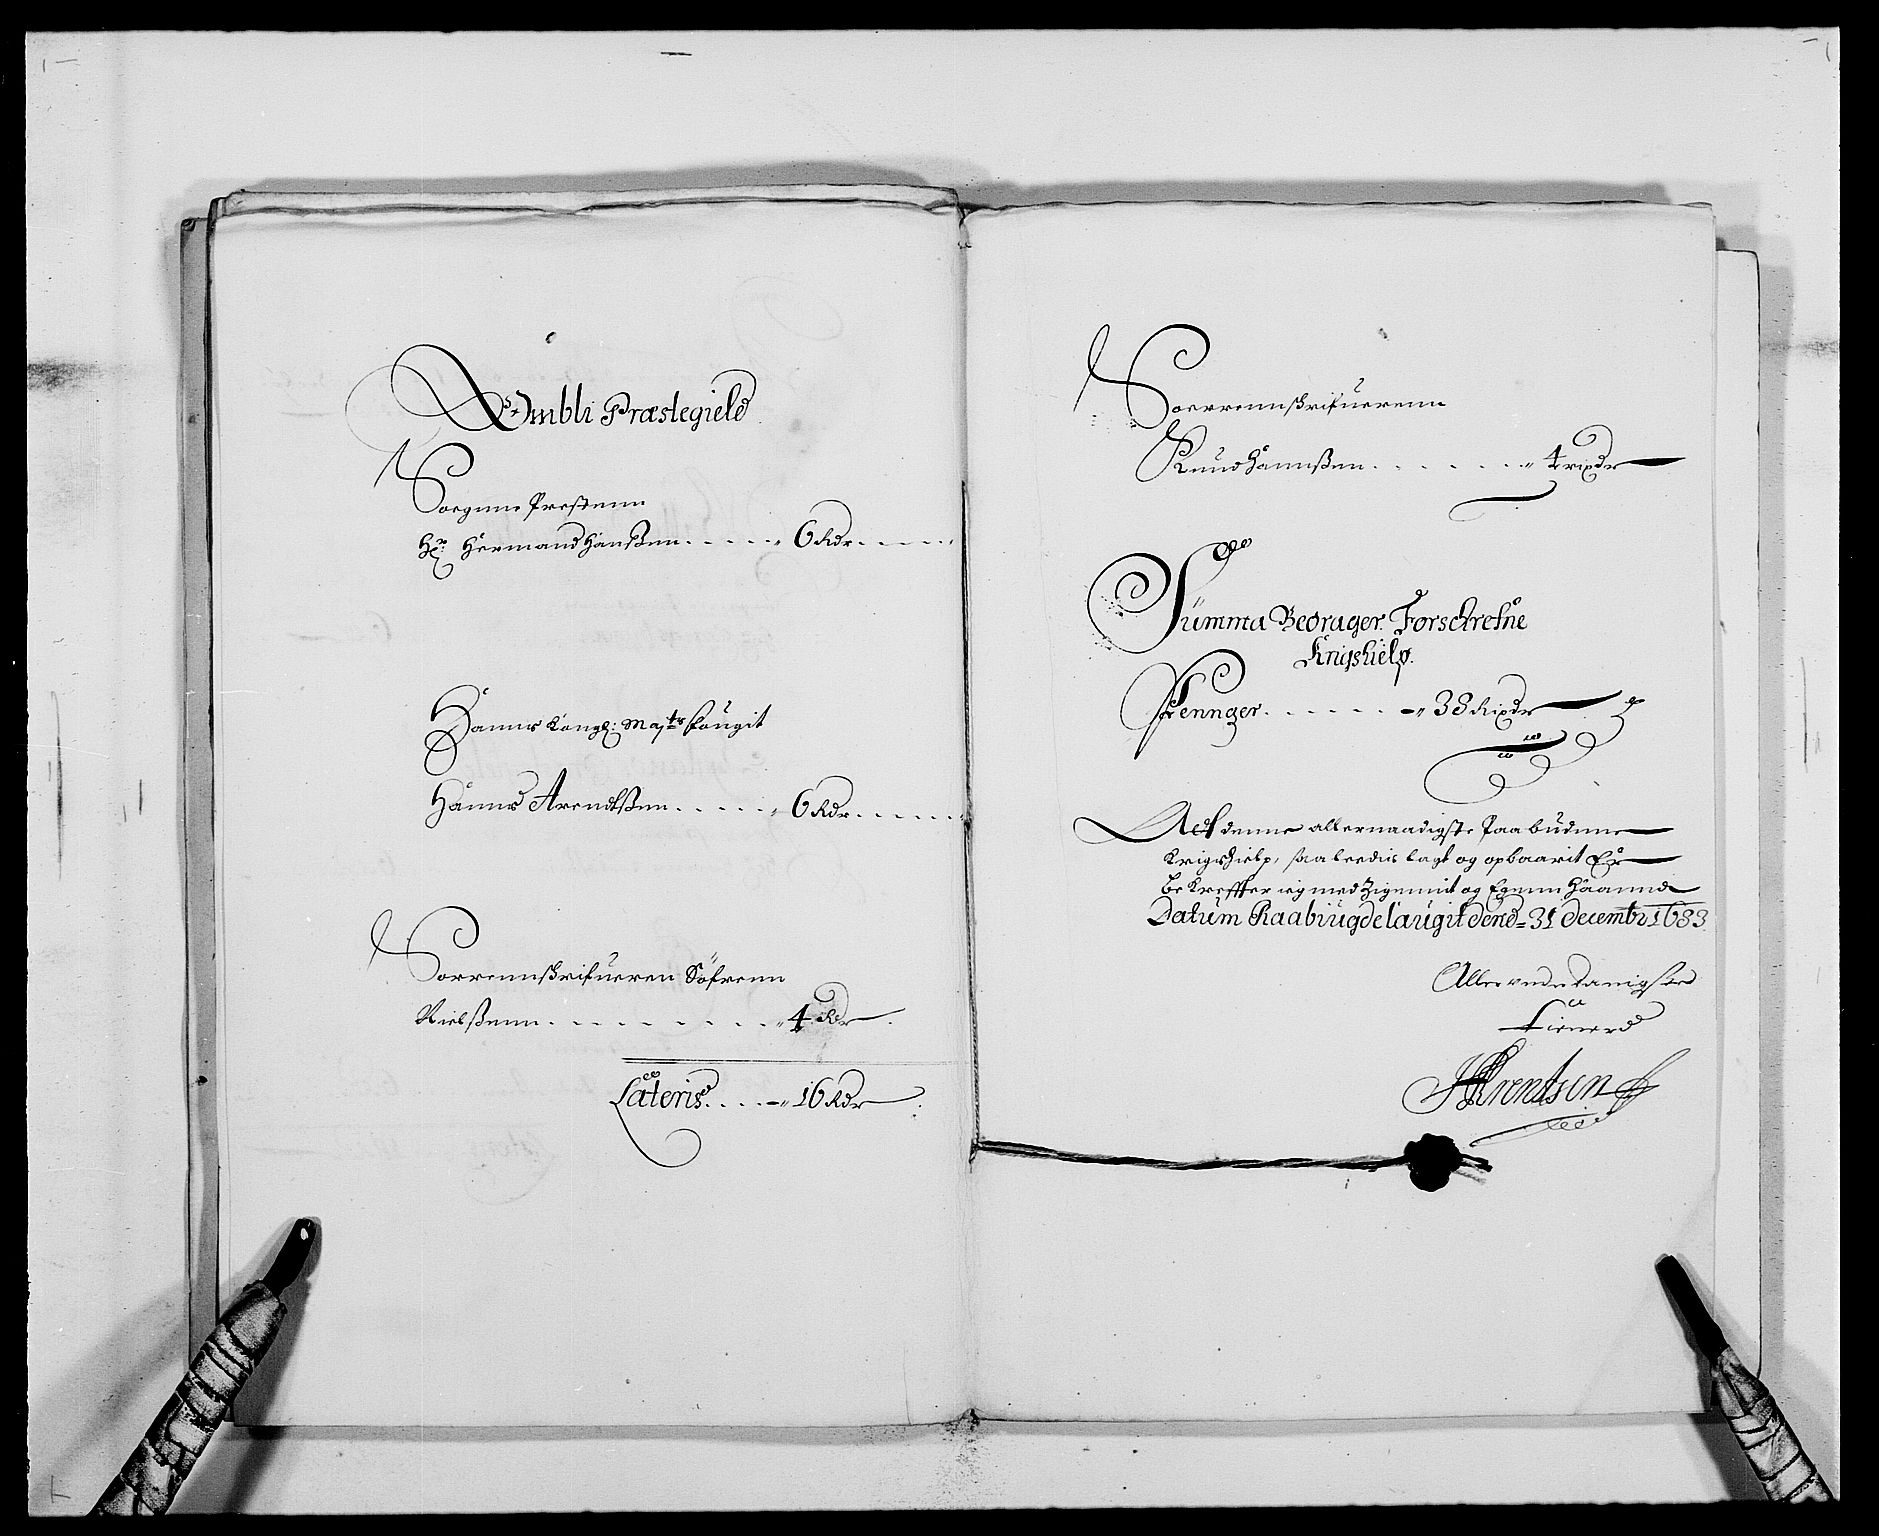 Ombli Præstegield
Soegne Prestenn
Hr: Hermand Hanßen . . . . . 6 Rdr . . . . .
Hanns Kongl: Mayts fougit
Hanns Arendtßen . . . . . 6 Rdr . . . . .
Sorrennskrifueren Söfrenn
Nielßenn . . . . . . . . 4 Rdr
Lateris . . . . 16 Rdr
Soerrennskrifuerenn
Knud Hannßen . . . . . . . 4 rixdr
Summa Bedrager Forschrefne
Krigshielp
Pennger . . . . . . 38 Rixdr
At denne allernaadigste Paabudenne
Krigshielp, saaledis lagt og opbaarit Er
bekreffter ieg med Zignnit og Egenn Haannd
Datum Raabiugdelaugit dend 31 decembr 1683
Allerunderdanigste
Tienere
HArentsen